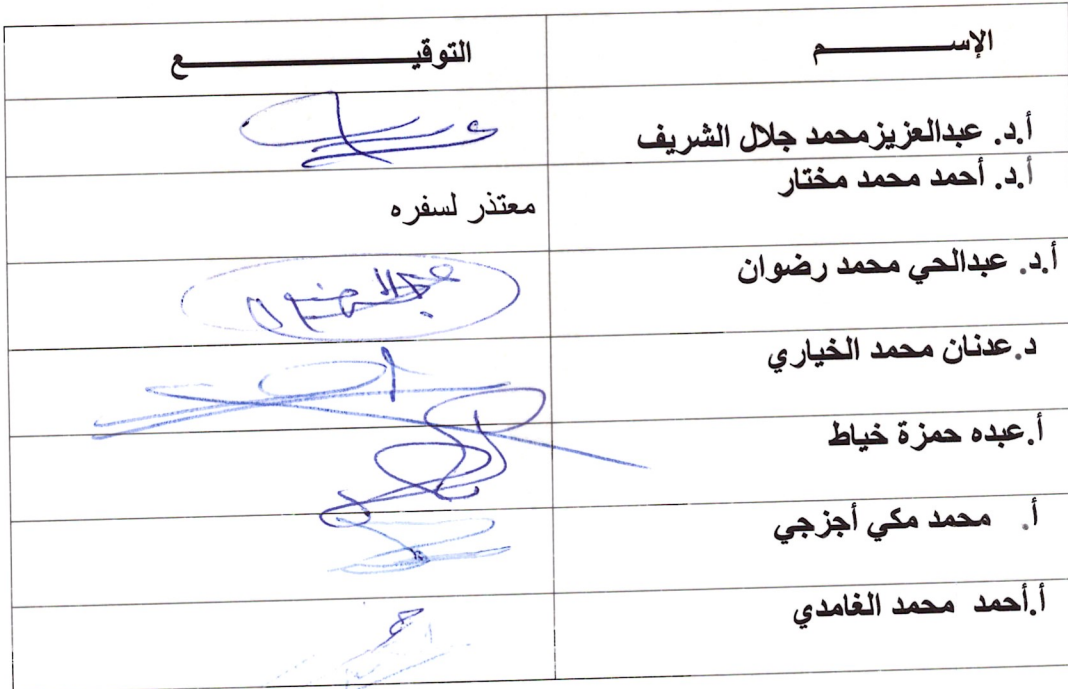 الإســـــــــــم	التوقيـــــــــــــــــــع
أ.د. عبدالعزيزمحمد جلال الشريف
أ.د. أحمد محمد مختار	معتذر لسفره
أ.د. عبدالحي محمد رضوان
د.عدنان محمد الخياري
أ.عبده حمزة خياط
أ. محمد مكي أجزجي
أ.أحمد محمد الغامدي